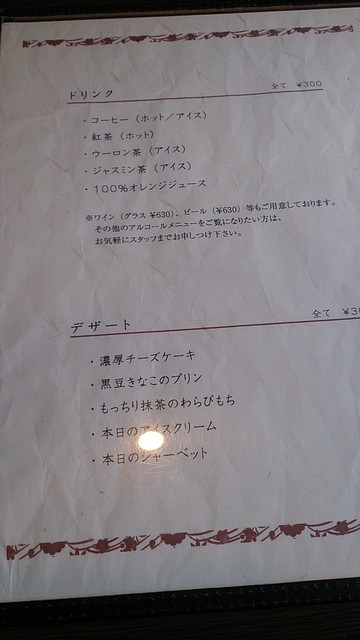 ドリンク 全て ¥300
・コーヒー（ホット／アイス）
・紅茶（ホット）
・ウーロン茶（アイス）
・ジャスミン茶（アイス）
・100%オレンジジュース
※ワイン（グラス ¥630）、ビール（¥630）等もご用意しております。
その他のアルコールメニューをご覧になりたい方は、
お気軽にスタッフまでお申しつけ下さい。
デザート 全て
・濃厚チーズケーキ
・黒豆きなこのプリン
・もっちり抹茶のわらびもち
・本日のアイスクリーム
・本日のシャーベット